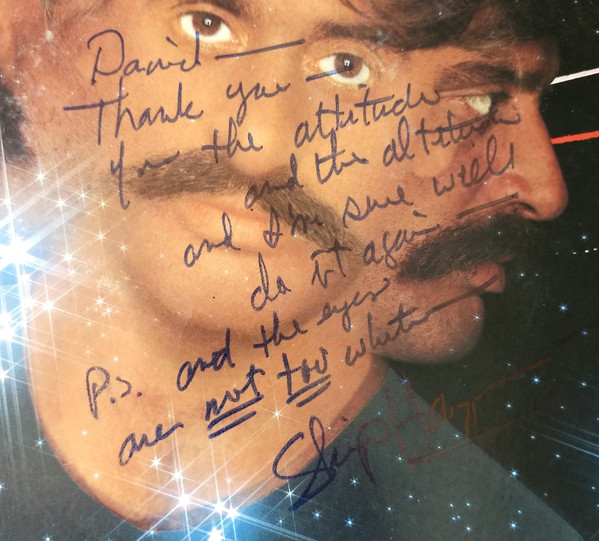 David —
Thank you —
for the attitude
and the altitude
and I'm sure we'll
do it again —
P.S. and the eyes
are not too white —
Skip